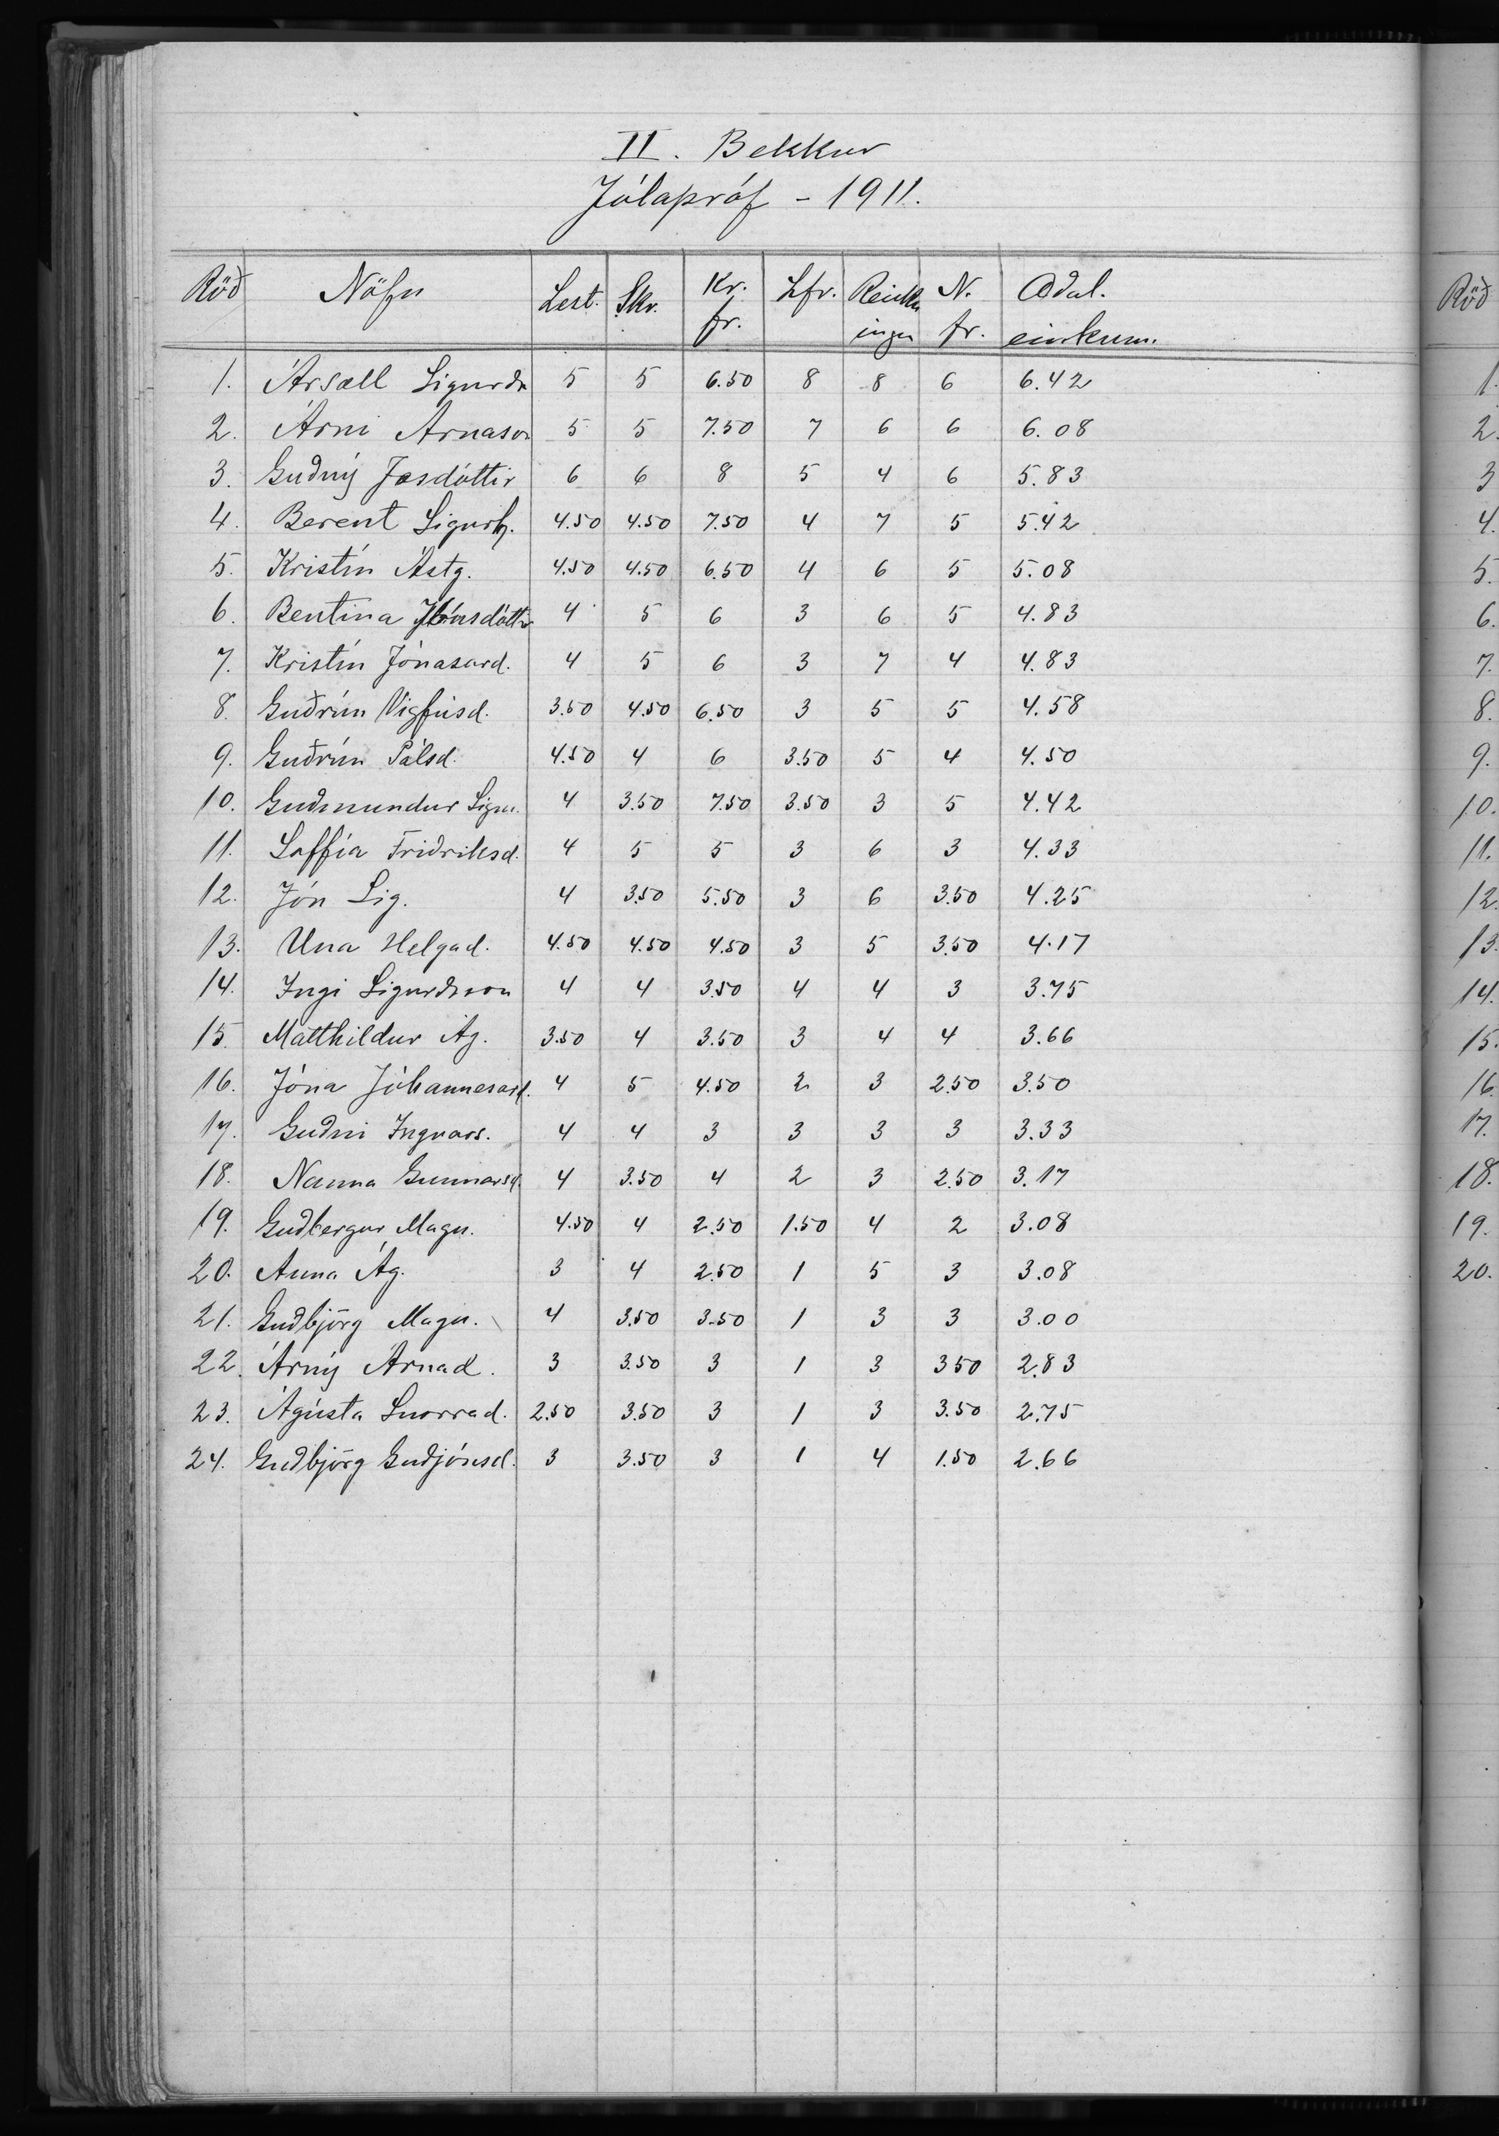 II. Bekkur
Jólapróf - 1911.
Röð Nöfn Lest. Skr. Kr. fr. Lfr. Reikningur N. fr. Aðal. einkunn.
1. Ársæll Sigurðs 5 5 6.50 8 8 6 6.42
2. Árni Árnason 5 5 7.50 7 6 6 6.08
3. Guðný Jósdóttir 6 6 8 5 4 6 5.83
4. Berent Sigurh. 4.50 4.50 7.50 4 7 5 5.42
5. Kristín Ástg. 4.50 4.50 6.50 4 6 5 5.08
6. Bentína Jónsdóttir 4 5 6 3 6 5 4.83
7. Kristín Jónasard. 4 5 6 3 7 4 4.83
8. Guðrún Vigfúsd. 3.50 4.50 6.50 3 5 5 4.58
9. Guðrún Pálsd. 4.50 4 6 3.50 5 4 4.50
10. Guðmundur Sigu. 4 3.50 7.50 3.50 3 5 4.42
11. Soffía Friðriksd. 4 5 5 3 6 3 4.33
12. Jón Sig. 4 3.50 5.50 3 6 3.50 4.25
13. Una Helgad. 4.50 4.50 4.50 3 5 3.50 4.17
14. Ingi Sigurðsson 4 4 3.50 4 4 3 3.75
15. Matthildur Ág. 3.50 4 3.50 3 4 4 3.66
16. Jóna Jóhannesard. 4 5 4.50 2 3 2.50 3.50
17. Guðni Ingvars. 4 4 3 3 3 3 3.33
18. Nanna Gunnarsd. 4 3.50 4 2 3 2.50 3.17
19. Guðbergur Magn. 4.50 4 2.50 1.50 4 2 3.08
20. Anna Ág. 3 4 2.50 1 5 3 3.08
21. Guðbjörg Magn. 4 3.50 3.50 1 3 3 3.00
22. Árný Árnad. 3 3.50 3 1 3 350 2.83
23. Ágústa Snorrad. 2.50 3.50 3 1 3 3.50 2.75
24. Guðbjörg Guðjónsd. 3 3.50 3 1 4 1.50 2.66
Röð
1.
2.
3
4.
5.
6.
7.
8.
9.
10.
11.
12.
13.
14.
15.
16.
17.
18.
19.
20.